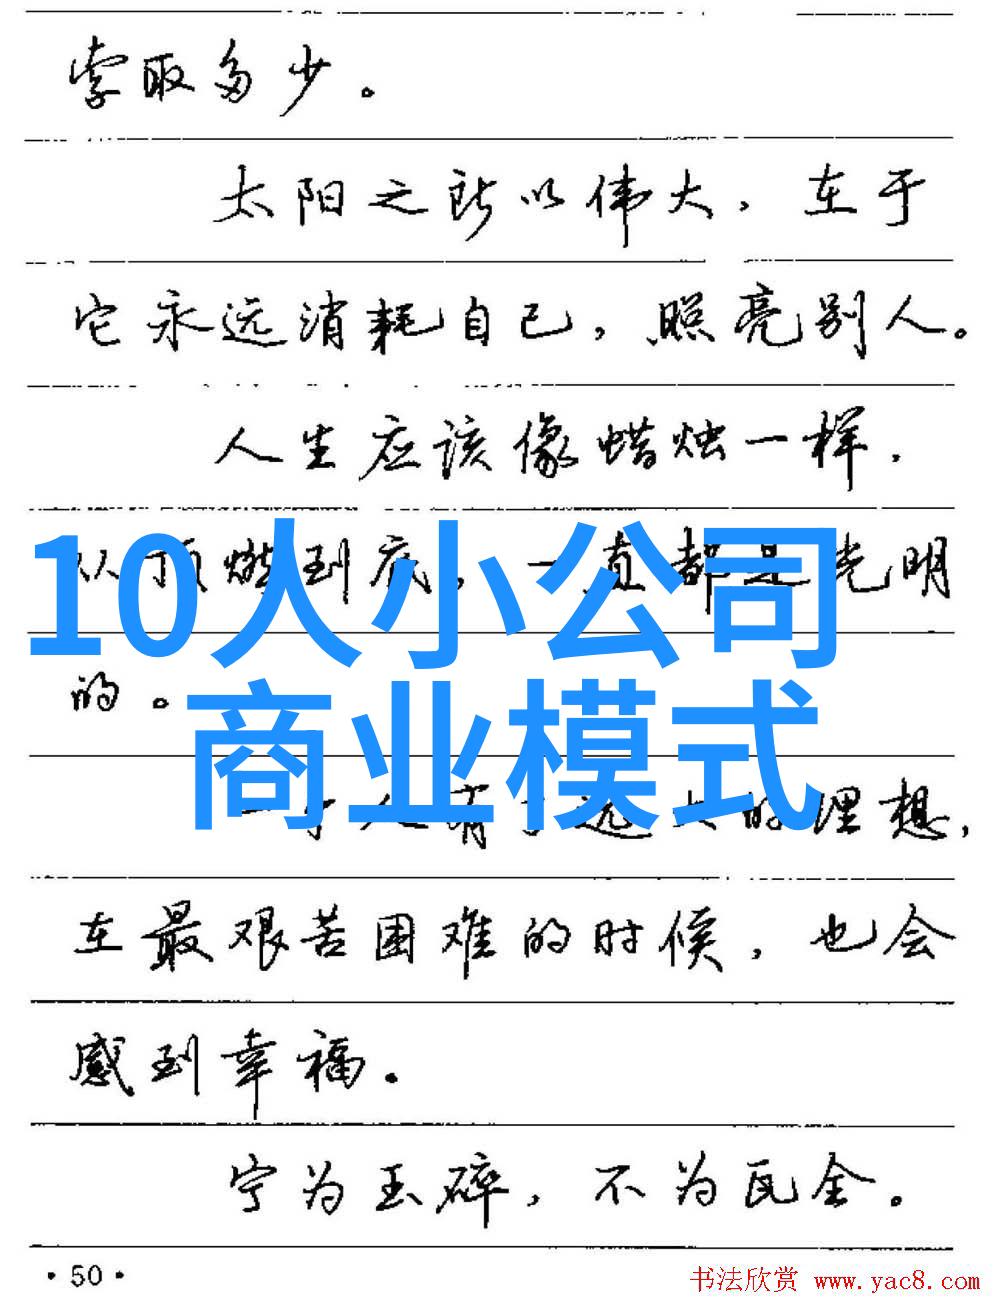 索取多少。
太阳之所以伟大,在于
它永远消耗自己,照亮别人。
人生应该像蜡烛一样,
从顶燃到底,一直都是光明
10人小公司
的。
商业模式
一个人有了远大的理想,
在最艰苦困难的时候,也会
感到幸福.
宁为玉碎,不为瓦全。
·50·
书法欣赏 www.yac8.com